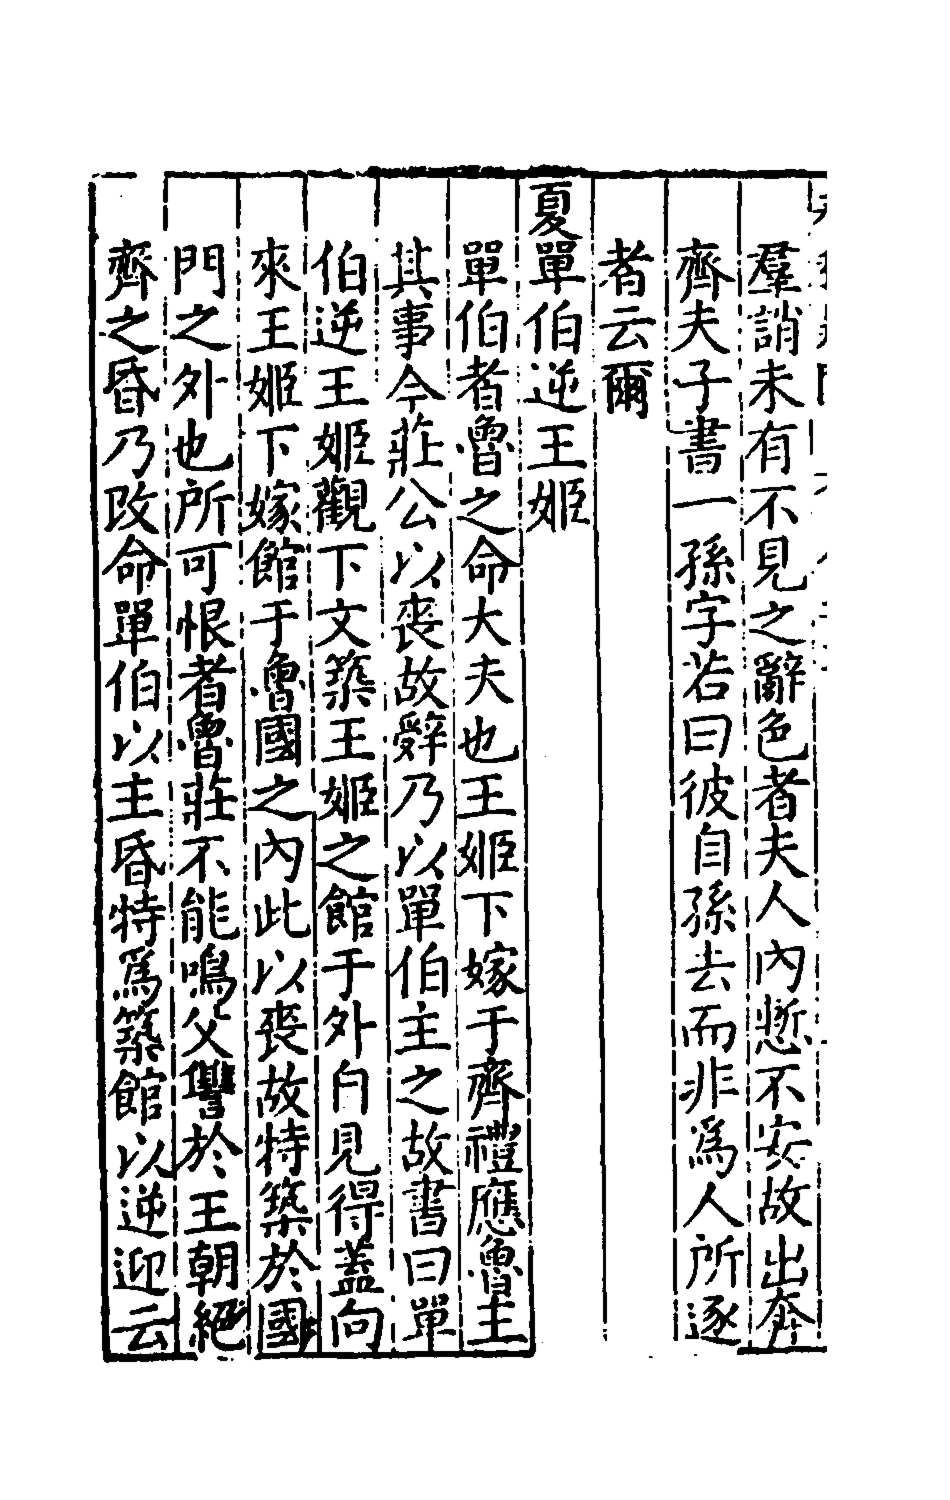 羣誚未有不見之辭色者夫人內慙不安故出奔
齊夫子書一孫字若曰彼自孫去而非爲人所逐
者云爾
夏單伯逆王姬
單伯者魯之命大夫也王姬下嫁于齊禮應魯主
其事今莊公以丧故辭乃以單伯主之故書曰單
伯逆王姬觀下文築王姬之館于外白見得蓋向
來王姬下嫁館于魯國之內此以丧故特築於國
門之外也所可恨者魯莊不能鳴父讐於王朝絕
齊之昏乃改命單伯以主昏特爲築館以逆迎云